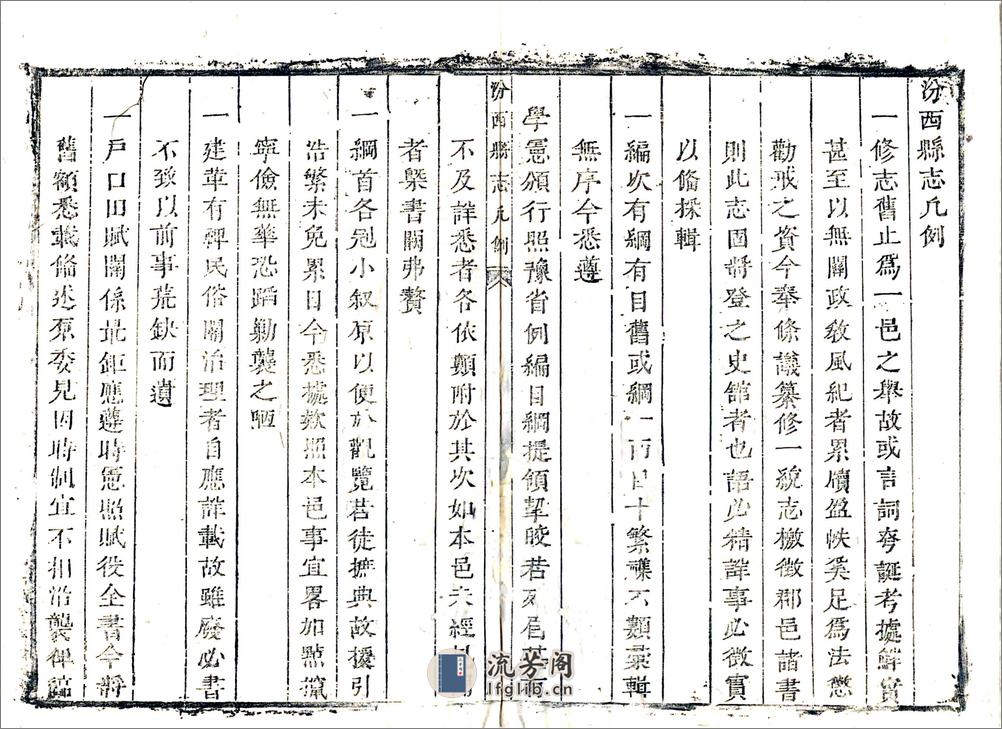 汾西縣志凡例
一修志舊止為一邑之舉故或言詞夸誕考據鮮實
甚至以無關政敎風紀者累牘盈帙奚足為法懲
勸戒之資今奉條議纂修一統志檄徵郡邑諸書
則此志固將登之史館者也語必精詳事必徵實
以備採輯
一編次有綱有目舊或綱一而目十繁襍不類彙輯
無序今悉遵
學憲頒行照豫省例編目綱提領挈晈若列眉
汾西縣志凡例
不及詳悉者各依類附於其次如本邑未經
者槩書闕弗贅
一綱首各冠小叙原以便於觀覽若徒摭典故援引
浩繁未免累目今悉據欵照本邑事宜畧加點
寧儉無華恐蹈勦襲之陋
一建革有裨民俗關治理者自應詳載故雖廢必書
不致以前事荒缺而遺
一戶口田賦關係最鉅應遵時憲照賦役全書今將
舊額悉載備述原委見因時制宜不相沿襲俾
流芳阁
lfglib.cn